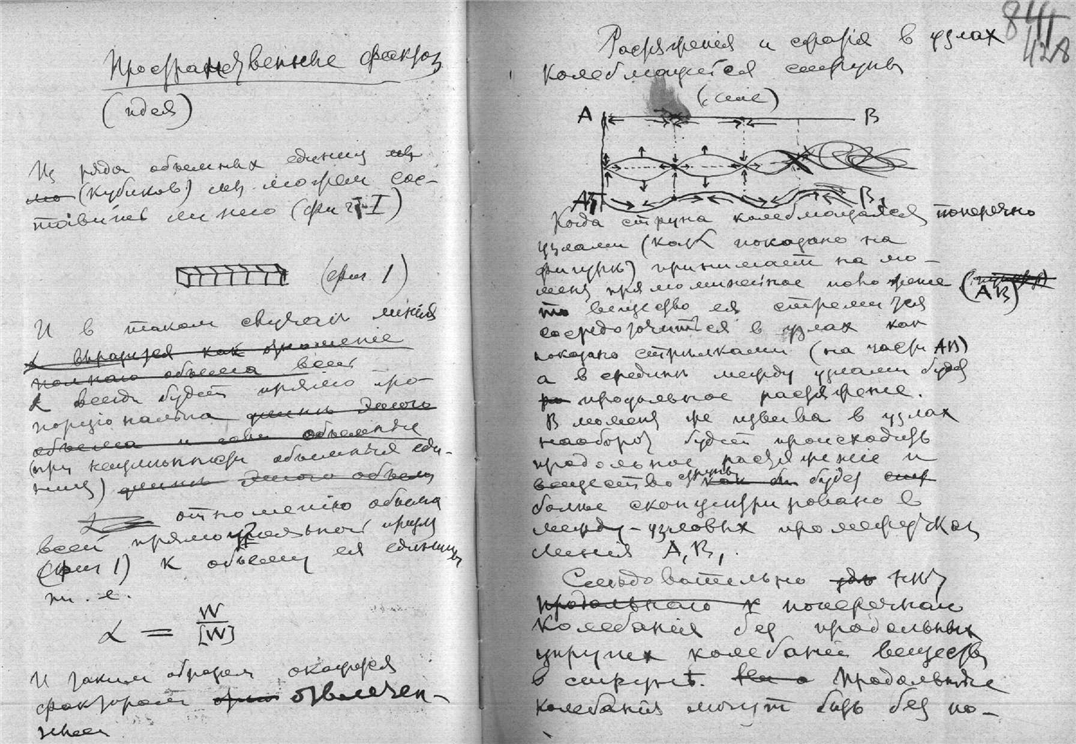 Пространственные факторы
(идея)
Из ряда объемных единиц
(кубиков) мы можем сос-
тавить линию (фиг I)
(фиг 1)
И в таком случае линия
L выразится как отношение
полного объема всей
L всегда будет прямо про-
порциональна
объема
(при объемных еди-
ниц)
отношению объема
всей прямоугольной призмы
(фиг 1) к объему ея единицы
т. е.
L = W
[W]
И таким образом окажется
фактором отвлечен-
844
Разряжения и сжатия в узлах
колеблющейся струны
A B
A₁ B₁
Когда струна колеблющаяся поперечно
узлами (как показано на
фигуре) принимает на мо-
мент прямолинейное положение (AB)
то вещество ея стремится
сосредоточиться в узлах как
показано стрелками (на части AB)
а в средине между узлами будет
продольное разряжение.
В момент же изгиба в узлах
наоборот будет происходить
продольное разряжение и
вещество струны будет
более сконцентрировано в
между-узловых промежутках
линия A₁B₁.
Следовательно нет
продольного поперечных
колебаний без продольных
упругих колебаний вещества
в струне. Продольные
колебания могут быть без по-